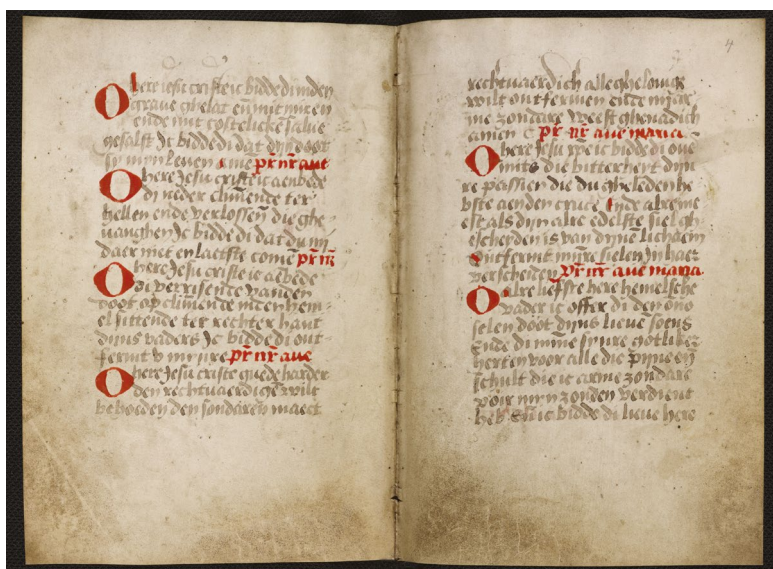 O here iesu criste ic bidde di inden
grave ghelat en mit mirren
ende mit costelicke salve
gesalft Ic bidde di dat dijn doot
sy mijn leven Ame pr nr ave
O here Jesu criste ic aenbede
di neder climende ter
hellen ende verlossen die ghe
vanghen Ic bidde di dat du mi
daer niet en laetste come pr nr
O here Jesu criste ic aebede
di verrisende vanden
doot op climende inten hem
el sittende ter rechter hant
dijns vaders Ic bidde di ont
fermt v mijnre pr nr ave
O here Jesu criste guede harder
den rechtvaerdigen wilt
behoeden den sondaren maect
4
rechtvaerdich alle ghelovige
wilt ontfermen ende mijre
me zondare weest ghenadich
amen pr nr ave maria
O here Jesu ic bidde di ove
mits die bitterheyt dijn
re passien die du gheleden he
bste aenden cruce Ende alreme
est als dijn alre edelste siel gh
escheyden is van dijne lichaem
Ontfermt mijre sielen In haer
verscheiden pr nr ave maria
O alre liefste here hemelsche
vader ic offer di den ono
selen doot dijns lieve soens
Ende di minne sijnre gotliker
herten voor alle die pijne en
schult die ic arme zondare
voir mijn zonden verdient
heb En ic bidde di lieve here